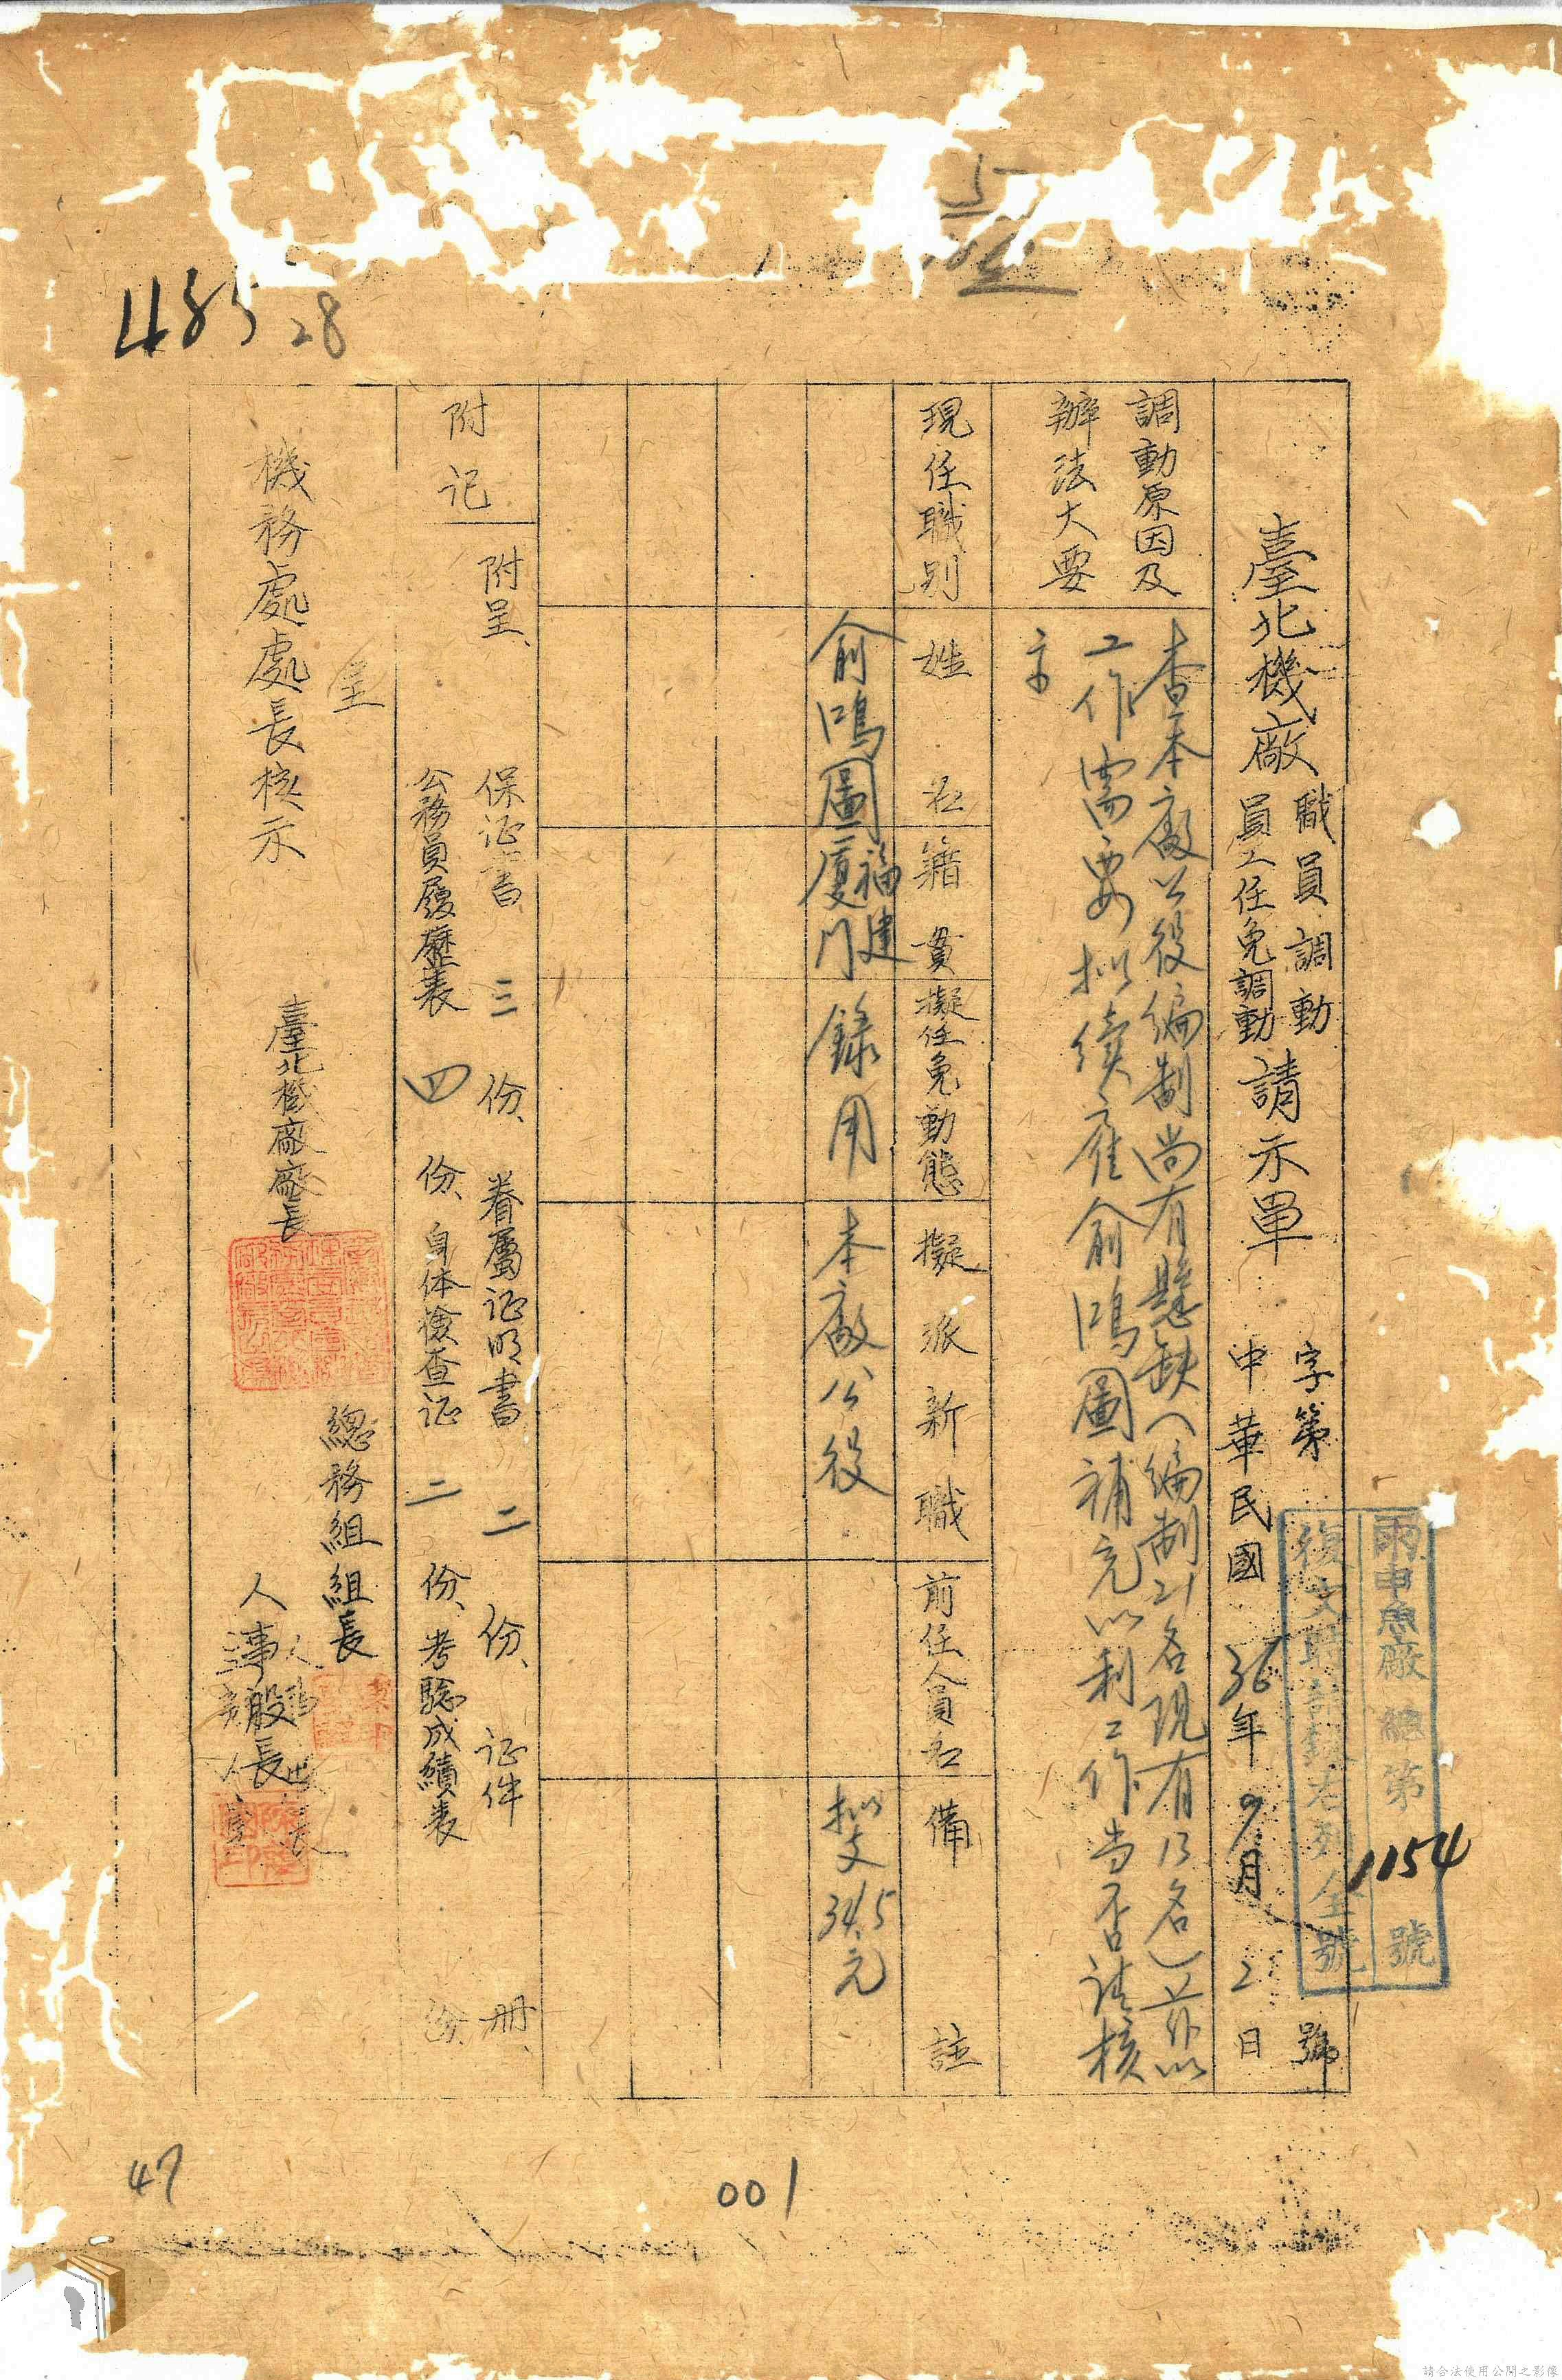 5
485
28
雨申魚廠總第1154號
復文時請錄右列全號
臺北機廠
職員調動
員工任免調動
請示單
字第 號
中華民國36年9月2日
調動原因及
辦法大要
查本廠公役編制尚有懸缺(編制21名現有13名)茲以
工作需要擬續雇俞鴻圖補充以利工作當否請核
示
現任職別
姓名
籍貫
擬任免動態
擬派新職
前任人員名
備註
俞鴻圖
福建
廈門
錄用
本廠公役
擬支34.5元
附記
附呈、保证書三份、眷屬证明書二份、证件 册、
公務員履歷表四份、身体檢查证二份、考驗成績表 份、
呈
機務處處長核示
臺北機廠廠長
總務組組長
人事股長
47
001
請合法使用公開之影像